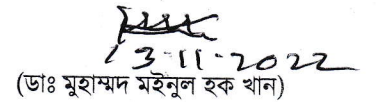 13-11-2022
(ডাঃ মুহাম্মদ মইনুল হক খান)